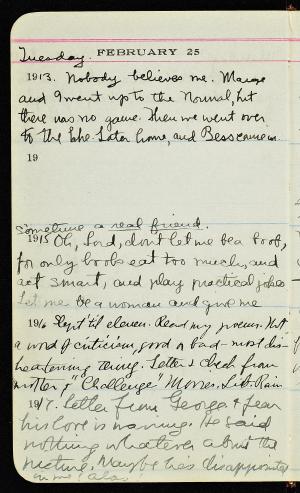 Tuesday.
FEBRUARY 25
1913. Nobody believes me. Marge
and I went up to the Normal, but
there was no game. Then we went over
to the lake. Later home, and Bess came in.
19
sometime a real friend.
1915 Oh, Lord, don't let me be a boob,
for only boobs eat too much, and
act smart, and play practical jokes
Let me be a woman and give me
1916 Slept 'til eleven. Read my poems. Not
a word of criticism, good or bad - most dis-
heartening thing. Letter & check from
mother & "Challenge" Money. Lib. Rain
1917. Letter from George & fear
his love is waning. He said
nothing whatever about the
picture. Maybe he's disappointed
in me alas!